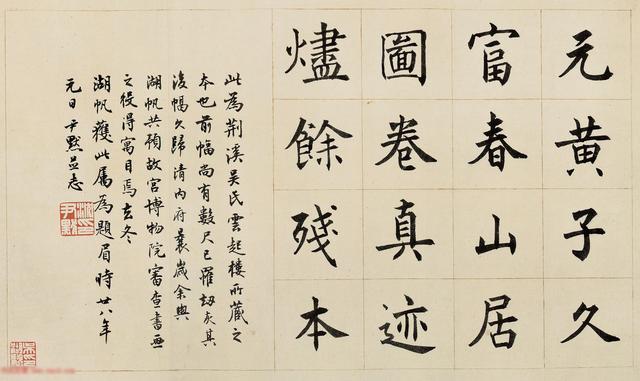 元黃子久
富春山居
圖卷真迹
燼餘殘本
此為荆溪吳氏雲起樓所藏之
本也前幅尚有數尺已罹劫灰其
後幅久歸清內府曩歲余與
湖帆共預故宮博物院審查書画
之役得寓目焉去冬
湖帆獲此属為題眉時廿八年
元日尹默並志